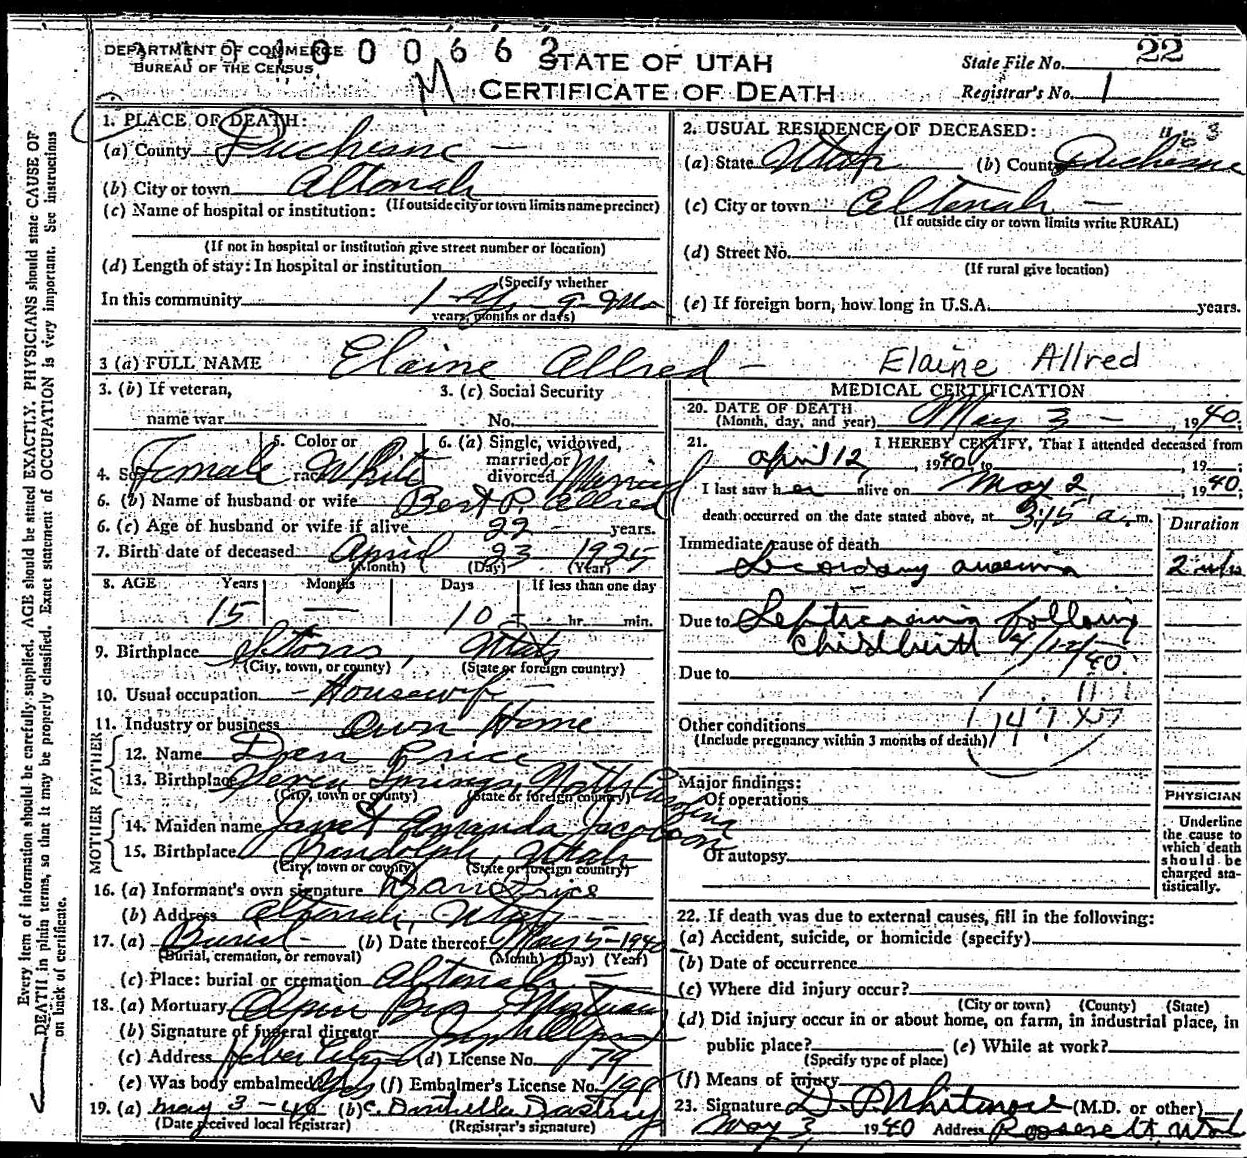 DEPARTMENT OF COMMERCE
BUREAU OF THE CENSUS
STATE OF UTAH
CERTIFICATE OF DEATH
M
State File No. 22
Registrar's No. 1
Every item of information should be carefully supplied. AGE should be stated EXACTLY. PHYSICIANS should state CAUSE OF
DEATH in plain terms, so that it may be properly classified. Exact statement of OCCUPATION is very important. See instructions
on back of certificate.
1. PLACE OF DEATH:
(a) County Duchesne
(b) City or town Altonah
(If outside city or town limits name precinct)
(c) Name of hospital or institution:
(If not in hospital or institution give street number or location)
(d) Length of stay: In hospital or institution
(Specify whether
In this community 1 y 9 mo
years, months or days)
2. USUAL RESIDENCE OF DECEASED:
(a) State Utah (b) County Duchesne
(c) City or town Altonah
(If outside city or town limits write RURAL)
(d) Street No.
(If rural give location)
(e) If foreign born, how long in U.S.A. years.
3 (a) FULL NAME Elaine Allred - Elaine Allred
3. (b) If veteran,
name war
3. (c) Social Security
No.
4. Sex Female
5. Color or
race White
6. (a) Single, widowed,
married or
divorced Married
6. (b) Name of husband or wife Bert P. Allred
6. (c) Age of husband or wife if alive 22 years.
7. Birth date of deceased April 23 1925
(Month) (Day) (Year)
8. AGE Years Months Days If less than one day
15 — 10 hr. min.
9. Birthplace Utah
(City, town, or county) (State or foreign country)
10. Usual occupation Housewife
11. Industry or business Own Home
FATHER
12. Name Dan Price
13. Birthplace Seven Springs, North Carolina
(City, town or county) (State or foreign country)
MOTHER
14. Maiden name Janet Amanda Jacobson
15. Birthplace Randolph, Utah
(City, town or county) (State or foreign country)
16. (a) Informant's own signature Dan Price
(b) Address Altonah, Utah
17. (a) Burial (b) Date thereof May 5-1940
(Burial, cremation, or removal) (Month) (Day) (Year)
(c) Place: burial or cremation Altonah
18. (a) Mortuary Olpin Bros Mortuary
(b) Signature of funeral director
(c) Address Heber (d) License No. 179
(e) Was body embalmed? Yes (f) Embalmer's License No.
19. (a) May 3-40 (b)
(Date received local registrar) (Registrar's signature)
MEDICAL CERTIFICATION
20. DATE OF DEATH
(Month, day, and year) May 3 - , 1940.
21. I HEREBY CERTIFY, That I attended deceased from
April 12, 1940, to , 19 ;
I last saw her alive on May 2, 1940;
death occurred on the date stated above, at 3:15 a.m.
Duration
Immediate cause of death
Secondary anemia 2 wks
Due to Septicemia following
childbirth 4/12/40.
Due to
Other conditions
(Include pregnancy within 3 months of death)
147
Major findings:
Of operations
Of autopsy
PHYSICIAN
Underline
the cause to
which death
should be
charged sta-
tistically.
22. If death was due to external causes, fill in the following:
(a) Accident, suicide, or homicide (specify)
(b) Date of occurrence
(c) Where did injury occur?
(City or town) (County) (State)
(d) Did injury occur in or about home, on farm, in industrial place, in
public place? (e) While at work?
(Specify type of place)
(f) Means of injury
23. Signature D. P. Whitmore (M.D. or other)
May 3, 1940 Address Roosevelt, Utah